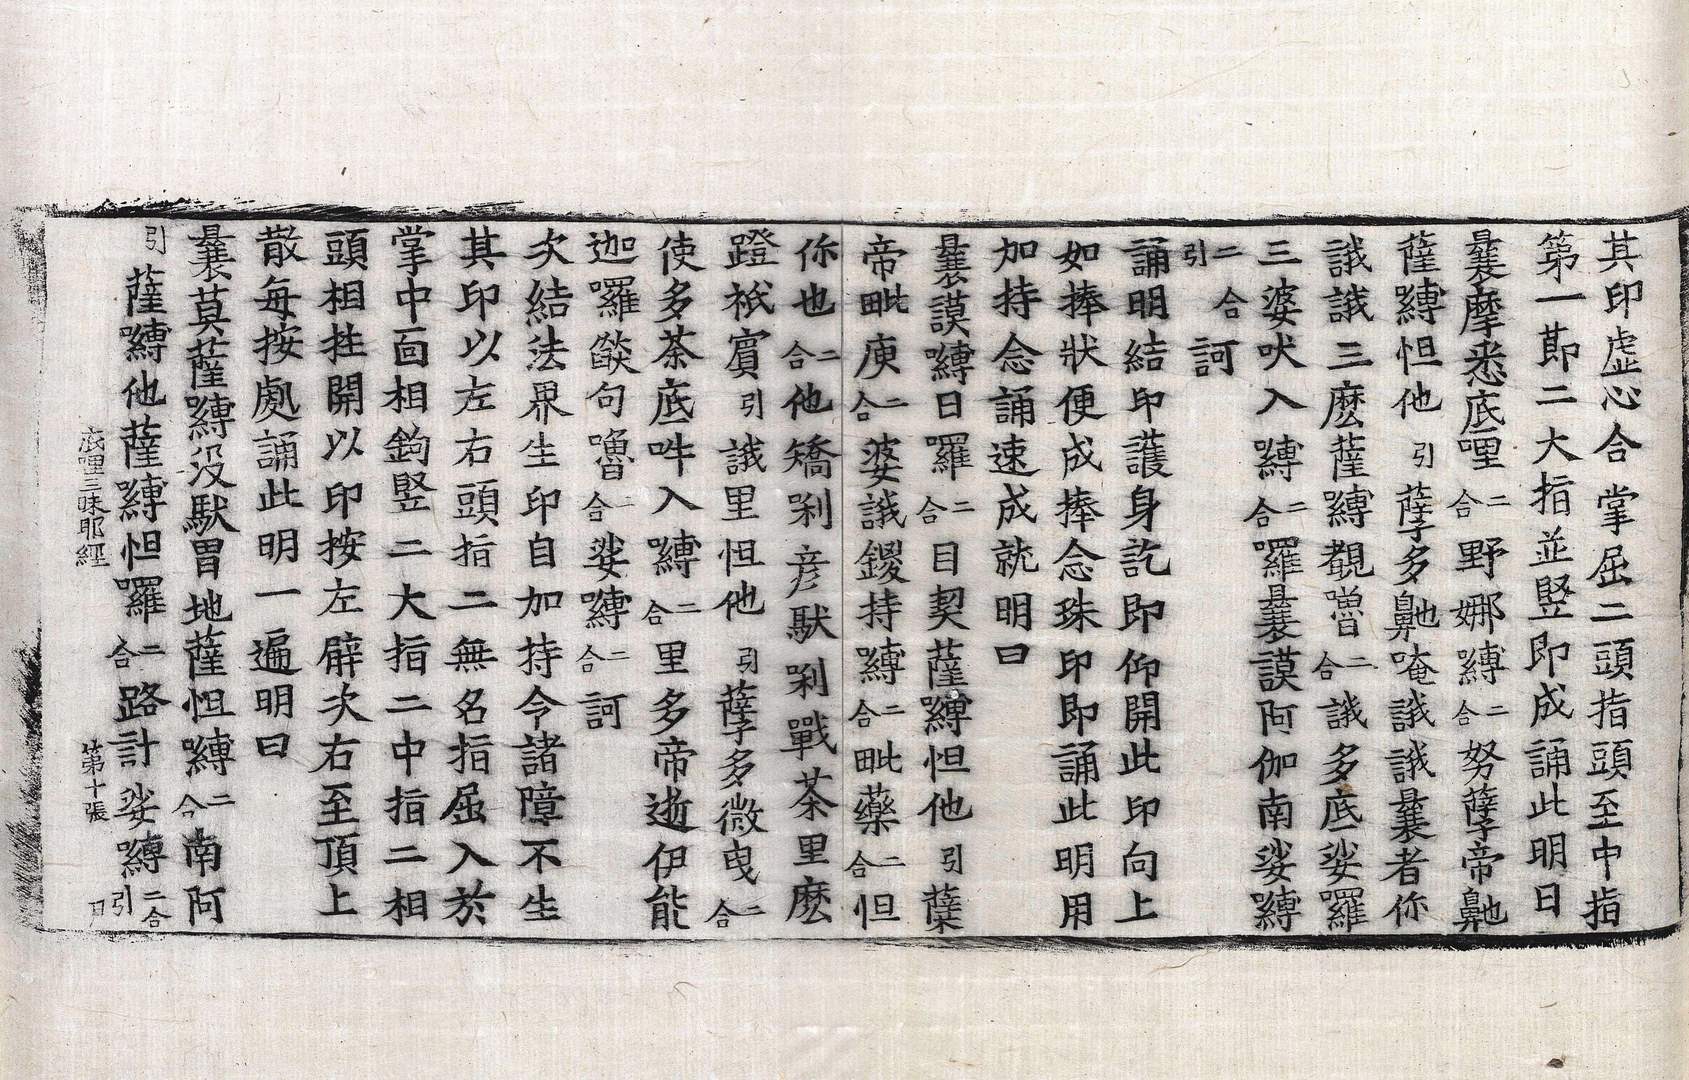 其印虛心合掌屈二頭指頭至中指
第一節二大指並豎即成誦此明曰
曩摩悉底哩二合野娜嚩二合努孽帝鼻
薩嚩怛他引孽多鼻唵誐誐曩者你
誐誐三麼薩嚩覩嚕二合誐多底娑囉
三婆吠入嚩二合囉曩謨阿伽南娑嚩
二合引訶
誦明結印護身訖即仰開此印向上
如捧狀便成捧念珠印即誦此明用
加持念誦速成就明曰
曩謨嚩日囉二合目契薩嚩怛他引蘖
帝毗庾二合婆誐鑁持嚩二合毗藥二合怛
你也二合他矯剎彥馱剎戰荼里麽
蹬祇賓引誐里怛他引孽多微曳二合
使多荼底吽入嚩二合里多帝逝伊能
迦囉燄句嚕二合娑嚩二合訶
次結法界生印自加持令諸障不生
其印以左右頭指二無名指屈入於
掌中面相鉤豎二大指二中指二相
頭相拄開以印按左臂次右至頂上
散每按處誦此明一遍明曰
曩莫薩嚩沒馱冒地薩怛嚩二合南阿
引薩嚩他薩嚩怛囉二合路計娑嚩二合引
底哩三昧耶經　第十張　刀